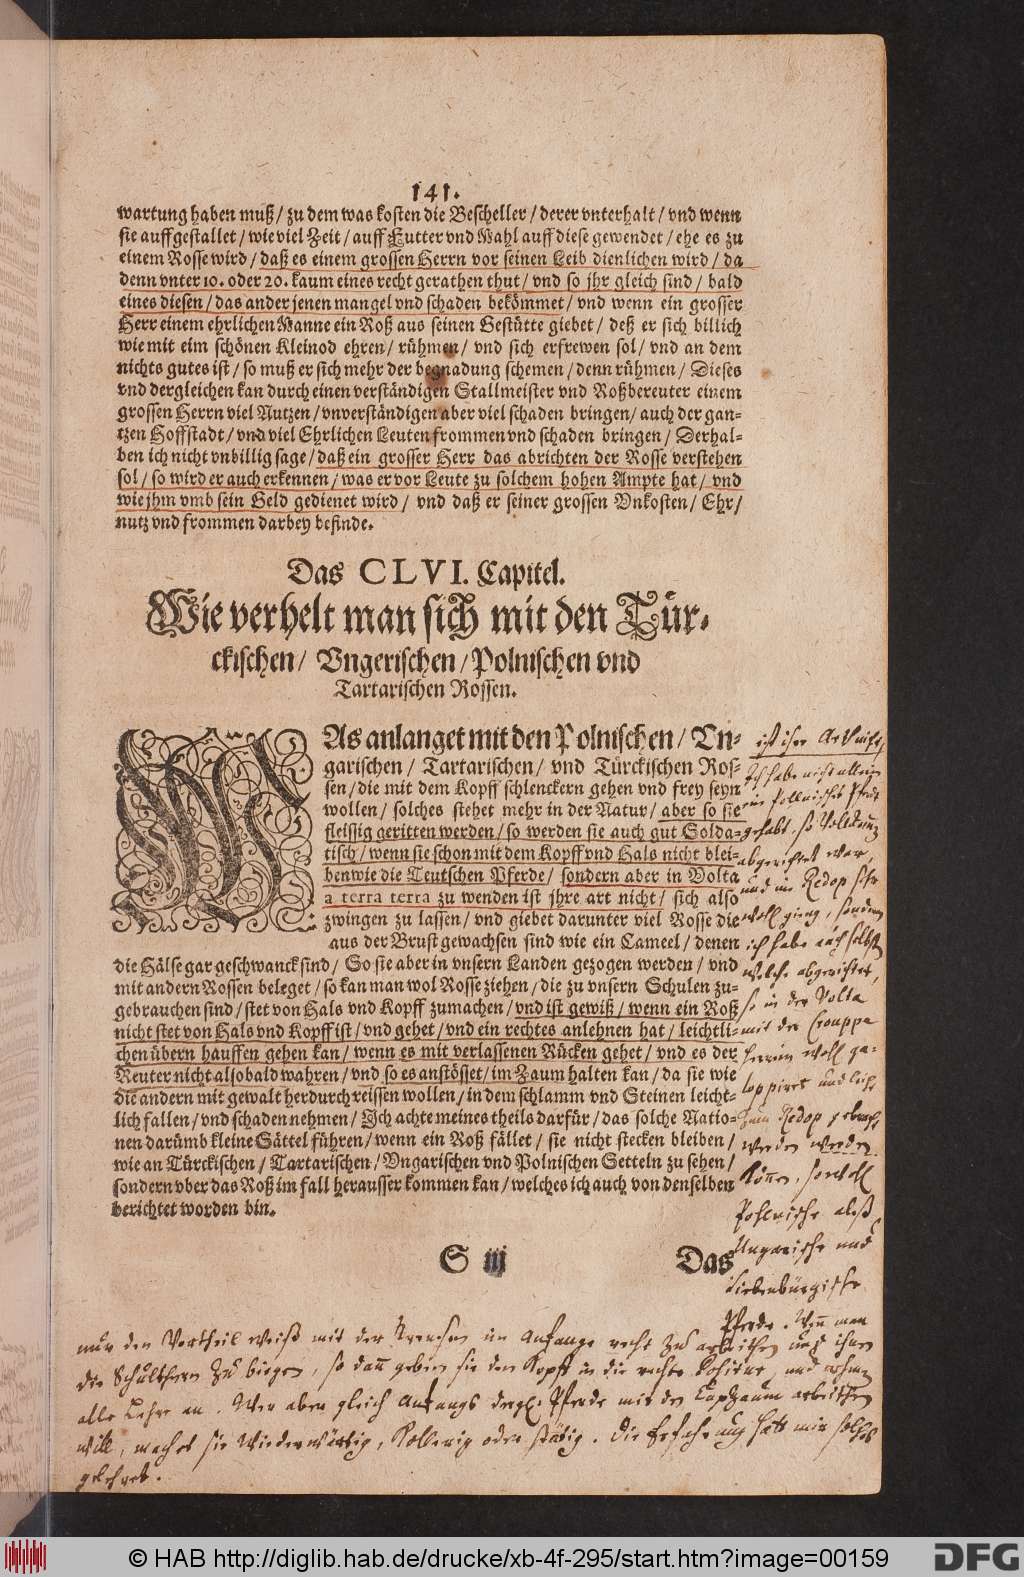 141.
wartung haben muß / zu dem was kosten die Bescheller / derer vnterhalt / vnd wenn
sie auffgestallet / wie viel Zeit / auff Futter vnd Mahl auff diese gewendet / ehe es zu
einem Rosse wird / daß es einem grossen Herrn vor seinen Leib dienlichen wird / da
denn vnter 10. oder 20. kaum eines recht gerathen thut / vnd so jhr gleich sind / bald
eines diesen / das ander jenen mangel vnd schaden bekömmet / vnd wenn ein grosser
Herr einem ehrlichen Manne ein Roß aus seinen Gestütte giebet / deß er sich billich
wie mit eim schönen Kleinod ehren / rühmen / vnd sich erfrewen sol / vnd an dem
nichts gutes ist / so muß er sich mehr der begnadung schemen / denn rühmen / Dieses
vnd dergleichen kan durch einen verständigen Stallmeister vnd Roßbereuter einem
grossen Herrn viel Nutzen / vnverständigen aber viel schaden bringen / auch der gan-
tzen Hoffstadt / vnd viel Ehrlichen Leuten frommen vnd schaden bringen / Derhal-
ben ich nicht vnbillig sage / daß ein grosser Herr das abrichten der Rosse verstehen
sol / so wird er auch erkennen / was er vor Leute zu solchem hohen Ampte hat / vnd
wie jhm vmb sein Geld gedienet wird / vnd daß er seiner grossen Vnkosten / Ehr /
nutz vnd frommen darbey befinde.
Das CLVI. Capitel.
Wie verhelt man sich mit den Tür-
ckischen / Vngerischen / Polnischen vnd
Tartarischen Rossen.
WAs anlanget mit den Polnischen / Vn-
garischen / Tartarischen / vnd Türckischen Ros-
sen / die mit dem Kopff schlenckern gehen vnd frey seyn
wollen / solches stehet mehr in der Natur / aber so sie
fleissig geritten werden / so werden sie auch gut Solda-
tisch / wenn sie schon mit dem Kopff vnd Hals nicht blei-
ben wie die Teutschen Pferde / sondern aber in Volta
a terra terra zu wenden ist jhre art nicht / sich also
zwingen zu lassen / vnd giebet darunter viel Rosse die
aus der Brust gewachsen sind wie ein Cameel / denen
die Hälse gar geschwanck sind / So sie aber in vnsern Landen gezogen werden / vnd
mit andern Rossen beleget / so kan man wol Rosse ziehen / die zu vnsern Schulen zu-
gebrauchen sind / stet von Hals vnd Kopff zumachen / vnd ist gewiß / wenn ein Roß
nicht stet von Hals vnd Kopff ist / vnd gehet / vnd ein rechtes anlehnen hat / leichtli-
chen übern hauffen gehen kan / wenn es mit verlassenen Rücken gehet / vnd es der
Reuter nicht alsobald wahren / vnd so es anstösset / im Zaum halten kan / da sie wie
die andern mit gewalt herdurch reissen wollen / in dem schlamm vnd Steinen leicht-
lich fallen / vnd schaden nehmen / Ich achte meines theils darfür / das solche Natio-
nen darümb kleine Sättel führen / wenn ein Roß fället / sie nicht stecken bleiben /
wie an Türckischen / Tartarischen / Vngarischen vnd Polnischen Setteln zu sehen /
sondern vber das Roß im fall herausser kommen kan / welches ich auch von denselben
berichtet worden bin.
S iij
Das
ist ihre Art nicht,
Ich habe nicht allein
ein Pollnisches Pferd
gehabt, so
abgerichtet war,
und im Redop sehr
woll gieng, sondern
ich habe auch selbst
welche abgerichtet,
so in der Volta
mit der Crouppe
herein woll ga-
loppiret und
zum Redop gebracht
werden
können, sowoll
Pohlnische alß
Ungarische und
Siebenbürgische
Pferde. Wenn man
nur den Vortheil weiß mit der im Anfange recht zu arbeithen und ihnen
die Schulthern zu biegen, so dann geben sie den Kopff in die rechte Positur, und nehmen
alle Lehre an. Wer aber gleich Anfangs dergl. Pferde mit der Capzaum arbeithen
will, machet sie Wiederwärtig, Kollerig oder stätig. Die Erfahrung hatt mir solches
gelehret.
© HAB http://diglib.hab.de/drucke/xb-4f-295/start.htm?image=00159
DFG